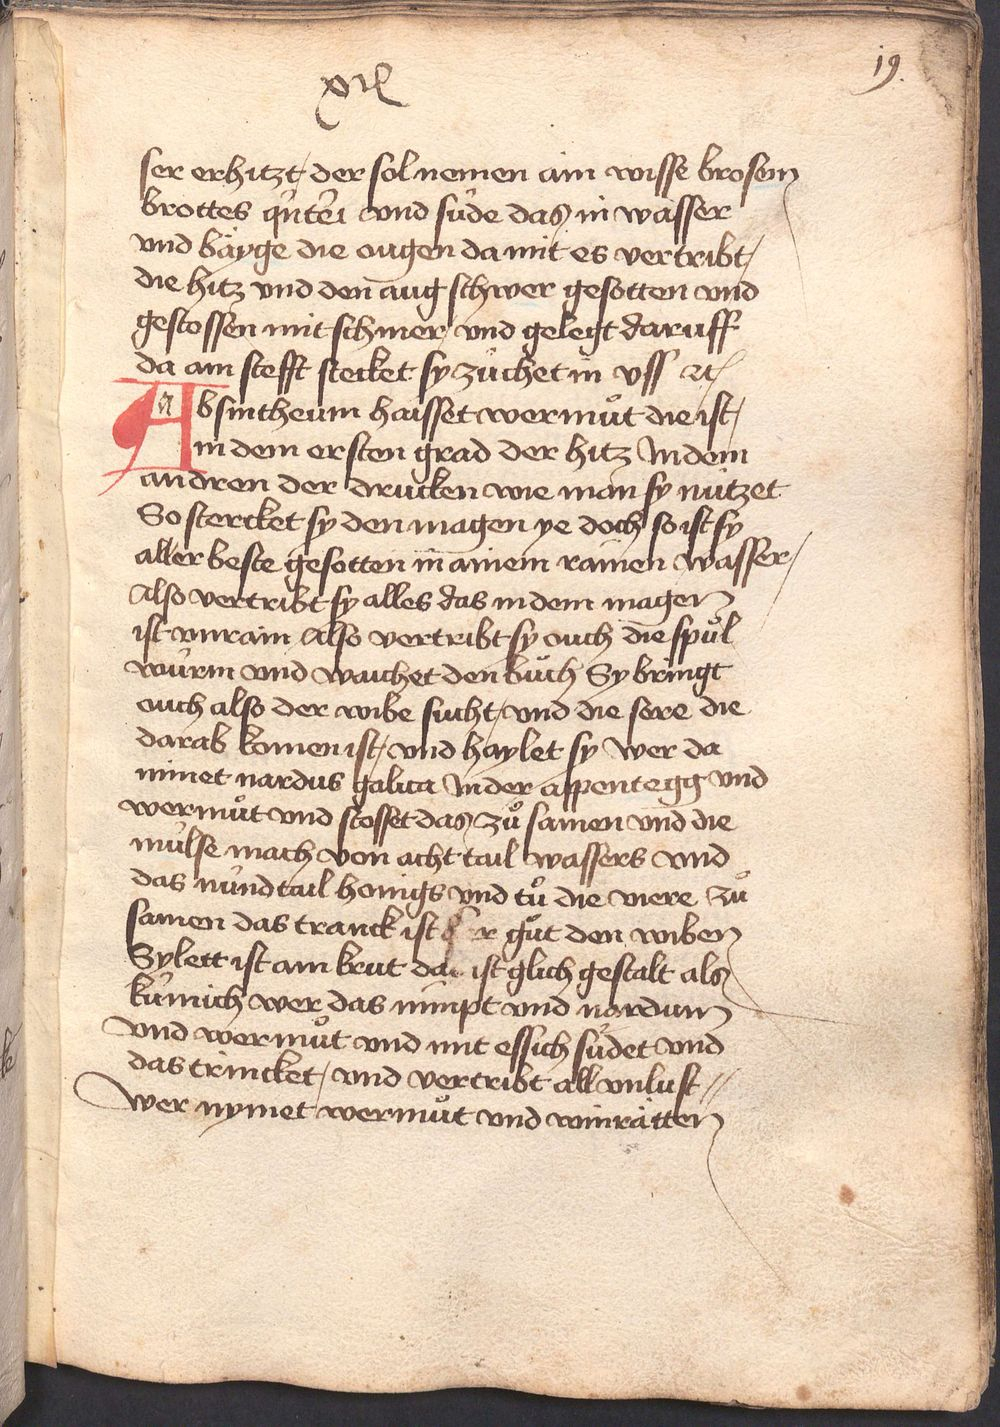 xix
19.
ser erhitzt / der sol nemen ain wisse brosem
brottes vnd süde das in wasser
vnd bäyge die ougen da mit es vertribt /
die hitz vnd den aug schwer gesotten vnd
gestossen mit schmer / vnd gelegt daruff
da ain stefft stecket sy zúchet in vss
Absintheum haisset wermůt die ist /
in dem ersten grad der hitz In dem
andren der drucken wie man sy nützet
So stercket sy den magen ye doch so ist sy
aller beste gesotten in ainem rainen wasser /
Also vertribt sy alles das in dem magen
ist vnrain Also vertribt sy ouch die spůl
würm vnd waichet den bůch Sy bringt
ouch also der wibe sucht / vnd die sere die
darab komen ist / vnd haylet sy Wer da
nimet nardus galica In der appentegg vnd
wermůt vnd stosset das zů samen vnd die
mülse mach von acht tail wassers vnd
das nünd tail honigs vnd tů die viere zů
samen das tranck ist gůt den wiben
Sylett ist ain krut das ist glich gestalt als
kümich wer das nimpt vnd nardum
vnd wermůt vnd mit essich südet vnd
das trincket / vnd vertribt all vnlust //
Wer nymet wermůt vnd winratten